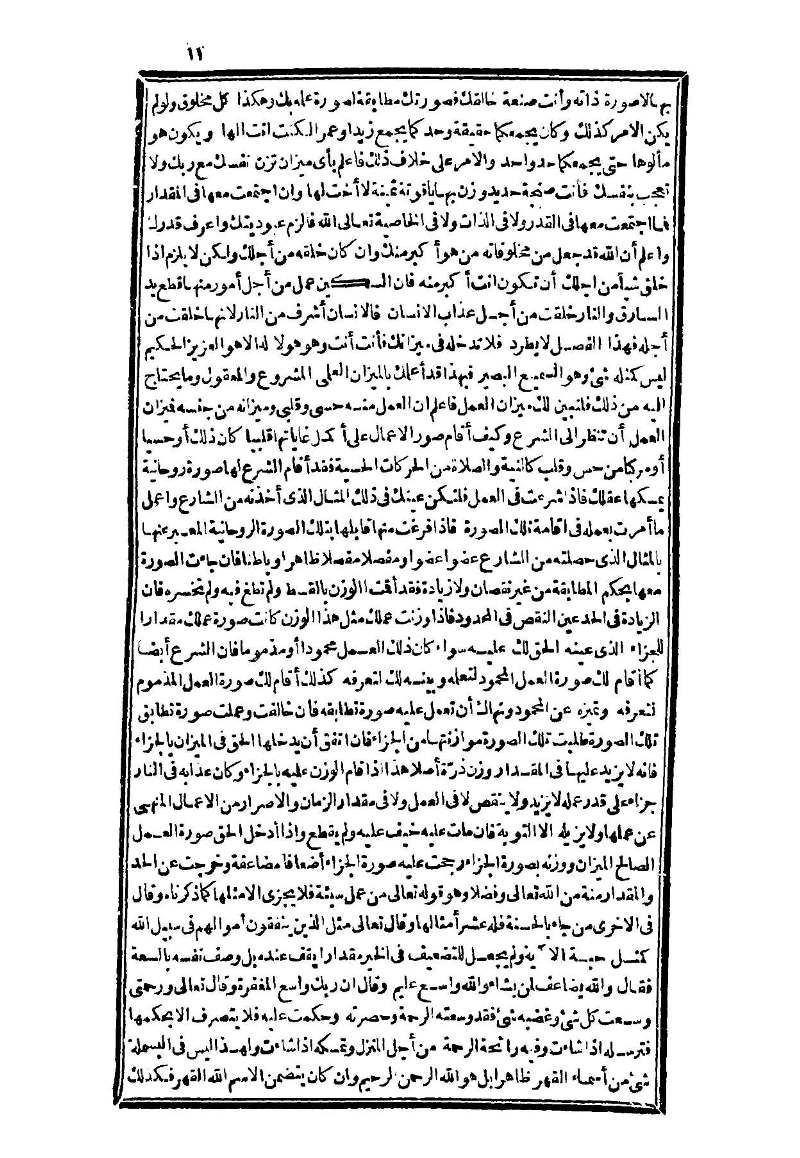 ١١
بها الاصورة ذاته وأنت صنعة خالقك فصورتك مطابقة لصورة علمه بك وهكذا كل مخلوق ولولم
يكن الامر كذلك وكان يجمعكما حقيقة وحد كما يجمع زيدا وعمرا لكنت انت الها ويكون هو
مألوها حتى يجمعكما حد واحد والامر على خلاف ذلك فاعلم بأى ميزان تزن نفسك مع ربك ولا
تعجب بنفسك فأنت صنجة حديد وزن بها ياقوتة يتيمة لا أخت لها وان اجتمعت معها فى المقدار
فما اجتمعت معها فى القدر ولا فى الذات ولا فى الخاصية تعالى الله فالزم عبوديتك واعرف قدرك
واعلم أن الله قد جعل من مخلوقاته من هو أكبر منك وان كان خلقه من أجلك ولكن لا يلزم اذا
خلق شيأ من اجلك أن تكون انت أكبر منه فان السكين عمل من أجل أمور منها قطع يد
السارق والنار خلقت من أجل عذاب الانسان فالانسان أشرف من النار لانها خلقت من
أجله فهذا الفصل لا يطرد فلا تدخله فى ميزانك فأنت أنت وهو هو لا اله الا هو العزيز الحكيم
ليس كمثله شئ وهو السميع البصير فبهذا قد أعلمك بالميزان العلمى المشروع والمعقول وما يحتاج
اليه من ذلك فلنبين لك ميزان العمل فاعلم ان العمل منه حسى وقلبى وميزانه من جنسه فميزان
العمل أن تنظر الى الشرع وكيف أقام صور الاعمال على أكمل غاياتها قلبيا كان ذلك أو حسيا
أو مركبا من حس وقلب كالنية والصلاة من الحركات الحسية فقد أقام الشرع لها صورة روحانية
يمسكها عقلك فاذا شرعت فى العمل فلتكن عينك فى ذلك المثال الذى أخذته من الشارع واعمل
ما أمرت بعمله فى اقامة تلك الصورة فاذا فرغت منها قابلها بتلك الصورة الروحانية المعبر عنها
بالمثال الذى حصلته من الشارع عضوا عضوا ومفصلا مفصلا ظاهرا وباطنا فان جاءت الصورة
معها بحكم المطابقة من غير نقصان ولا زيادة فقد أقمت الوزن بالقسط ولم تطغ فيه ولم تخسره فان
الزيادة فى الحد عين النقص فى المحدود فاذا وزنت عملك مثل هذا الوزن كانت صورة عملك مقدارا
للجزاء الذى عينه الحق لك عليه سواء كان ذلك العمل محمودا أو مذموما فان الشرع أيضا
كما أقام لك صورة العمل المحمود لتعمله وبينه لك لتعرفه كذلك أقام لك صورة العمل المذموم
لتعرفه وتميزه عن المحمود ونهاك أن تعمل عليه صورة تطابقه فان خالفت وعملت صورة تطابق
تلك الصورة طلبت تلك الصورة موازنتها من الجزاء فان اتفق أن يدخلها الحق فى الميزان بالجزاء
فانه لا يزيد عليها فى المقدار وزن ذرة أصلا هذا اذا قام الوزن عليه بالجزاء وكان عذابه فى النار
جزاء على قدر عمله لا يزيد ولا ينقص لا فى العمل ولا فى مقدار الزمان والاصرار من الاعمال المنهى
عن عملها ولا يزيله الا التوبة فان مات عليه خيف عليه ولم يقطع واذا أدخل الحق صورة العمل
الصالح الميزان ووزنه بصورة الجزاء رجحت عليه صورة الجزاء أضعافا مضاعفة وخرجت عن الحد
والمقدار منة من الله تعالى وفضلا وهو قوله تعالى من عمل سيئة فلا يجزى الا مثلها كما ذكرناه وقال
فى الاخرى من جاء بالحسنة فله عشر أمثالها وقال تعالى مثل الذين ينفقون أموالهم فى سبيل الله
كمثل حبة الآية ولم يجعل للتضعيف فى الخير مقدارا يقف عنده بل وصف نفسه بالسعة
فقال والله يضاعف لمن يشاء والله واسع عليم وقال ان ربك واسع المغفرة وقال تعالى ورحمتى
وسعت كل شئ وغضبه شئ فقد وسعته الرحمة وحصرته وحكمت عليه فلا يتصرف الا بحكمها
فترسله اذا شاءت وفيه رائحة الرحمة من أجل المنزل وتمسكه اذا شاءت ولهذا ليس فى البسملة
شئ من أسماء القهر ظاهرا بل هو الله الرحمن الرحيم وان كان يتضمن الاسم الله القهر فكذلك